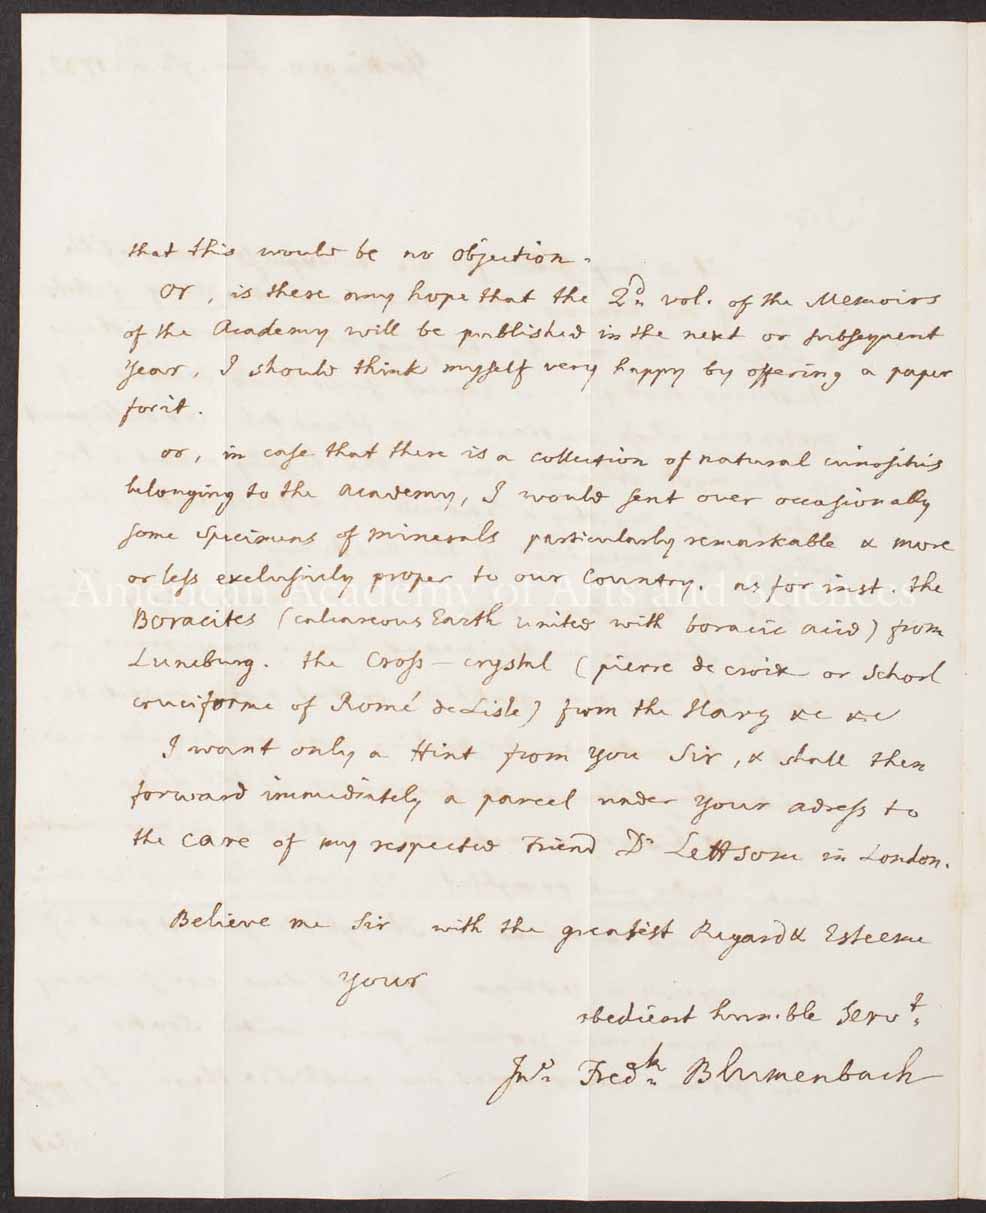 that this would be no objection.
or, is there any hope that the 2d. vol. of the Memoirs
of the Academy will be published in the next or subsequent
year, I should think myself very happy by offering a paper
for it.
or, in case that there is a collection of natural curiosities
belonging to the Academy, I would sent over occasionally
some Specimens of minerals particularly remarkable & more
or less exclusively proper to our Country. as for inst. the
American Academy of Arts and Sciences
Boracites (calcareous Earth united with boracic acid) from
Luneburg. the Cross-crystal (pierre de croix or Schorl
cruciforme of Romé de Lisle) from the Harz &c &c
I want only a Hint from you Sir, & shall then
forward immediately a parcel under your adress to
the care of my respected Friend Dr Lettsome in London.
Believe me Sir with the greatest Regard & Esteeme
your
obedient humble Servt.
Jno. Fredk. Blumenbach